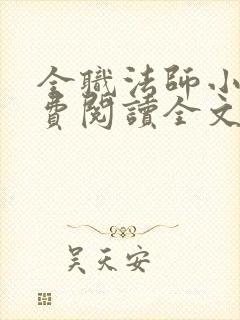 全職法師小
費閱讀全文
吴天安